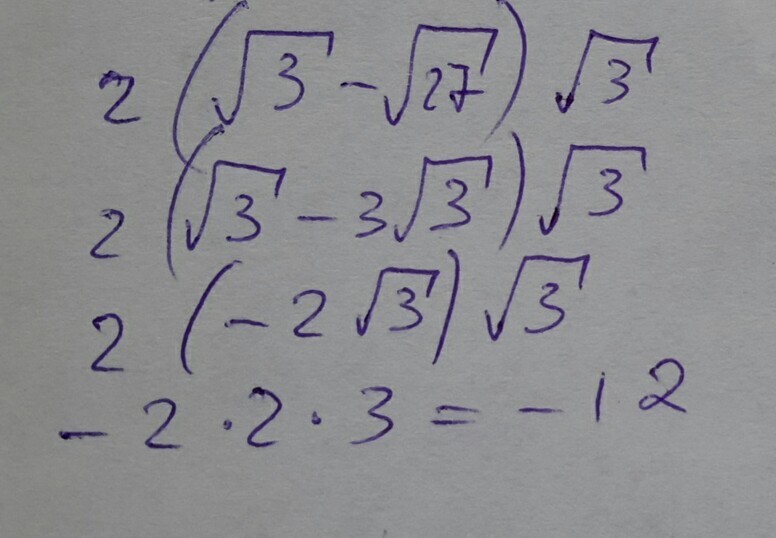 2(√3 - √27)√3
2(√3 - 3√3)√3
2(-2√3)√3
-2·2·3 = -12